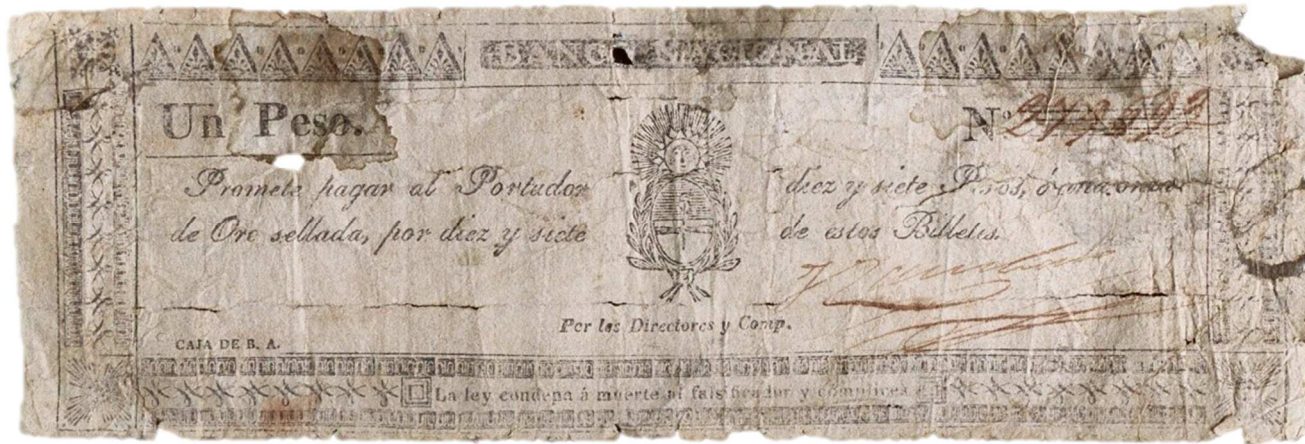 BANCO NACIONAL
Un Peso. Nº
Promete pagar al Portador diez y siete Pesos, ó una onza
de Oro sellada, por diez y siete de estos Billetes.
Por los Directores y Comp.
CAJA DE B. A.
La ley condena á muerte al falsificador y complices